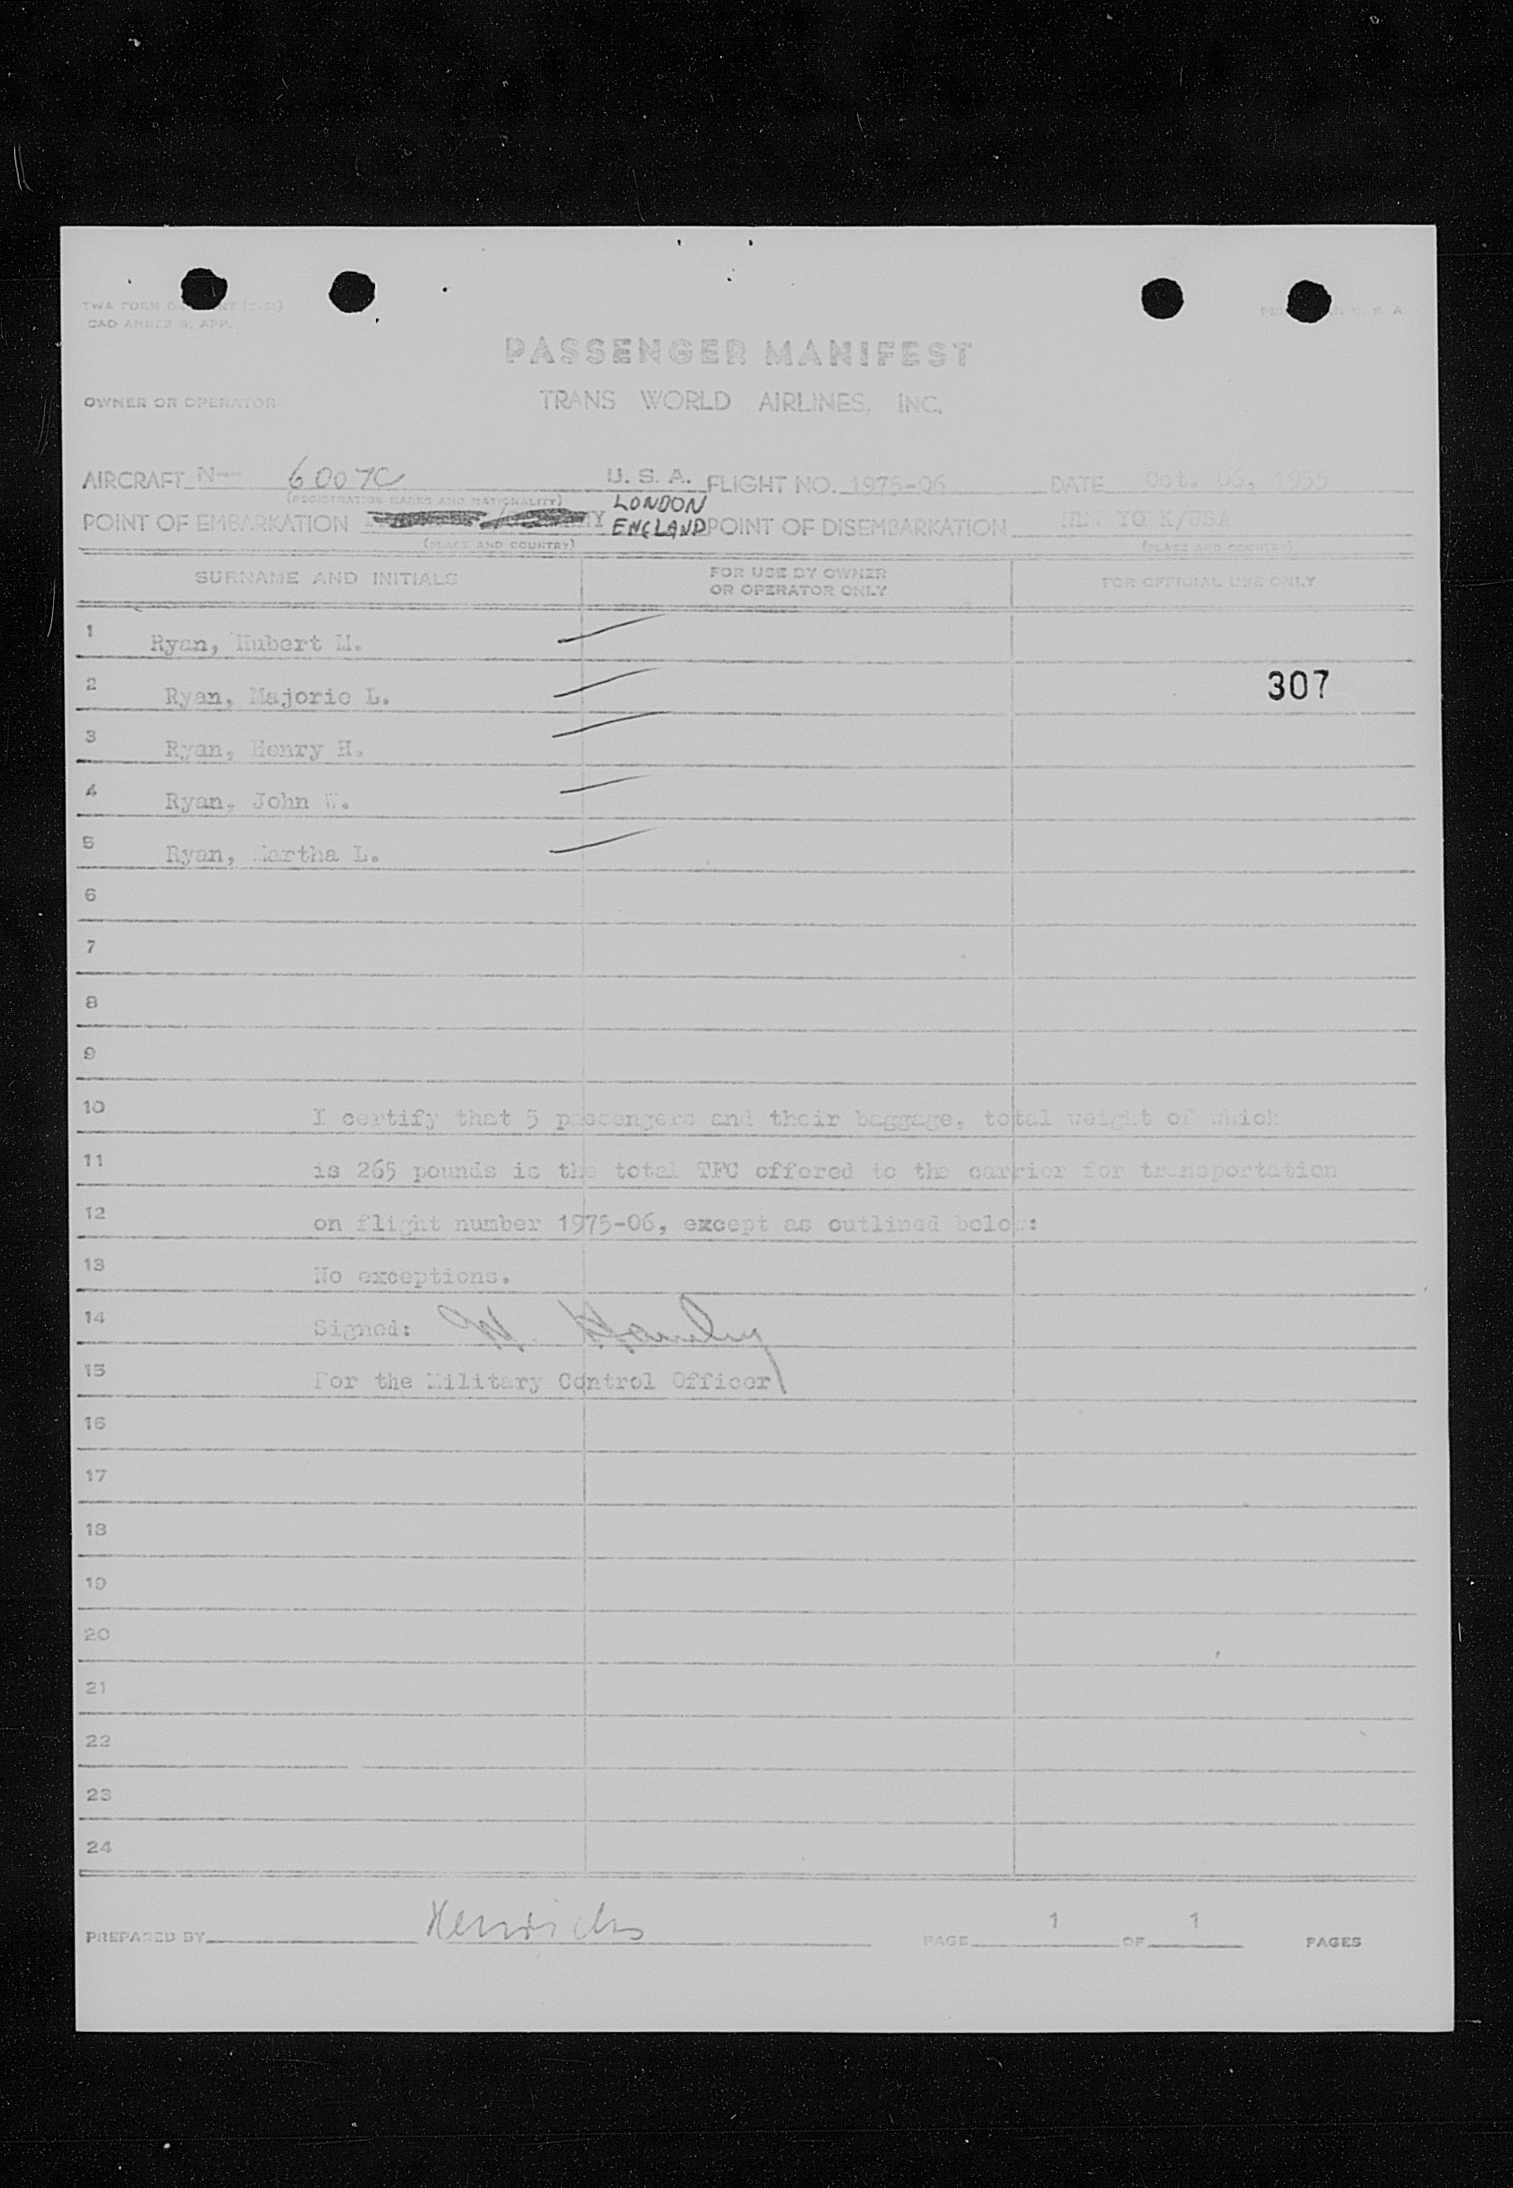 TWA FORM
PASSENGER MANIFEST
OWNER OR OPERATOR TRANS WORLD AIRLINES, INC.
AIRCRAFT N-- 6007C U. S. A. FLIGHT NO. 1975-06 DATE Oct. 06, 1955
(REGISTRATION MARKS AND NATIONALITY)
LONDON
POINT OF EMBARKATION ENGLAND POINT OF DISEMBARKATION NEW YORK/USA
(PLACE AND COUNTRY) (PLACE AND COUNTRY)
SURNAME AND INITIALS FOR USE BY OWNER OR OPERATOR ONLY FOR OFFICIAL USE ONLY
1 Ryan, Hubert M.
2 Ryan, Majorie L. 307
3 Ryan, Henry H.
4 Ryan, John W.
5 Ryan, Martha L.
6
7
8
9
10 I certify that 5 passengers and their baggage, total weight of which
11 is 265 pounds is the total TFC offered to the carrier for transportation
12 on flight number 1975-06, except as outlined below:
13 No exceptions.
14 Signed:
15 For the Military Control Officer
16
17
18
19
20
21
22
23
24
PREPARED BY Henrichs PAGE 1 OF 1 PAGES